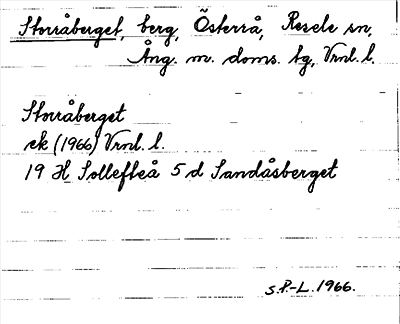 Storråberget, berg, Österrå, Resele sn,
Ång. m. doms. tg, Vrnl. l.
Storråberget
ek (1966) Vrnl. l.
19 H Sollefteå 5 d Sandåsberget
S.P-L. 1966.